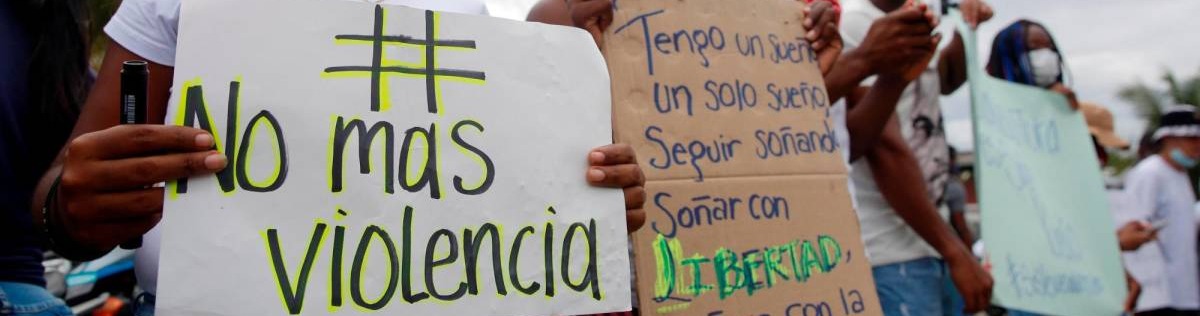 #
No mas
violencia
Tengo un sueño
un solo sueño
Seguir soñando
Soñar con
LIBERTAD,
con la